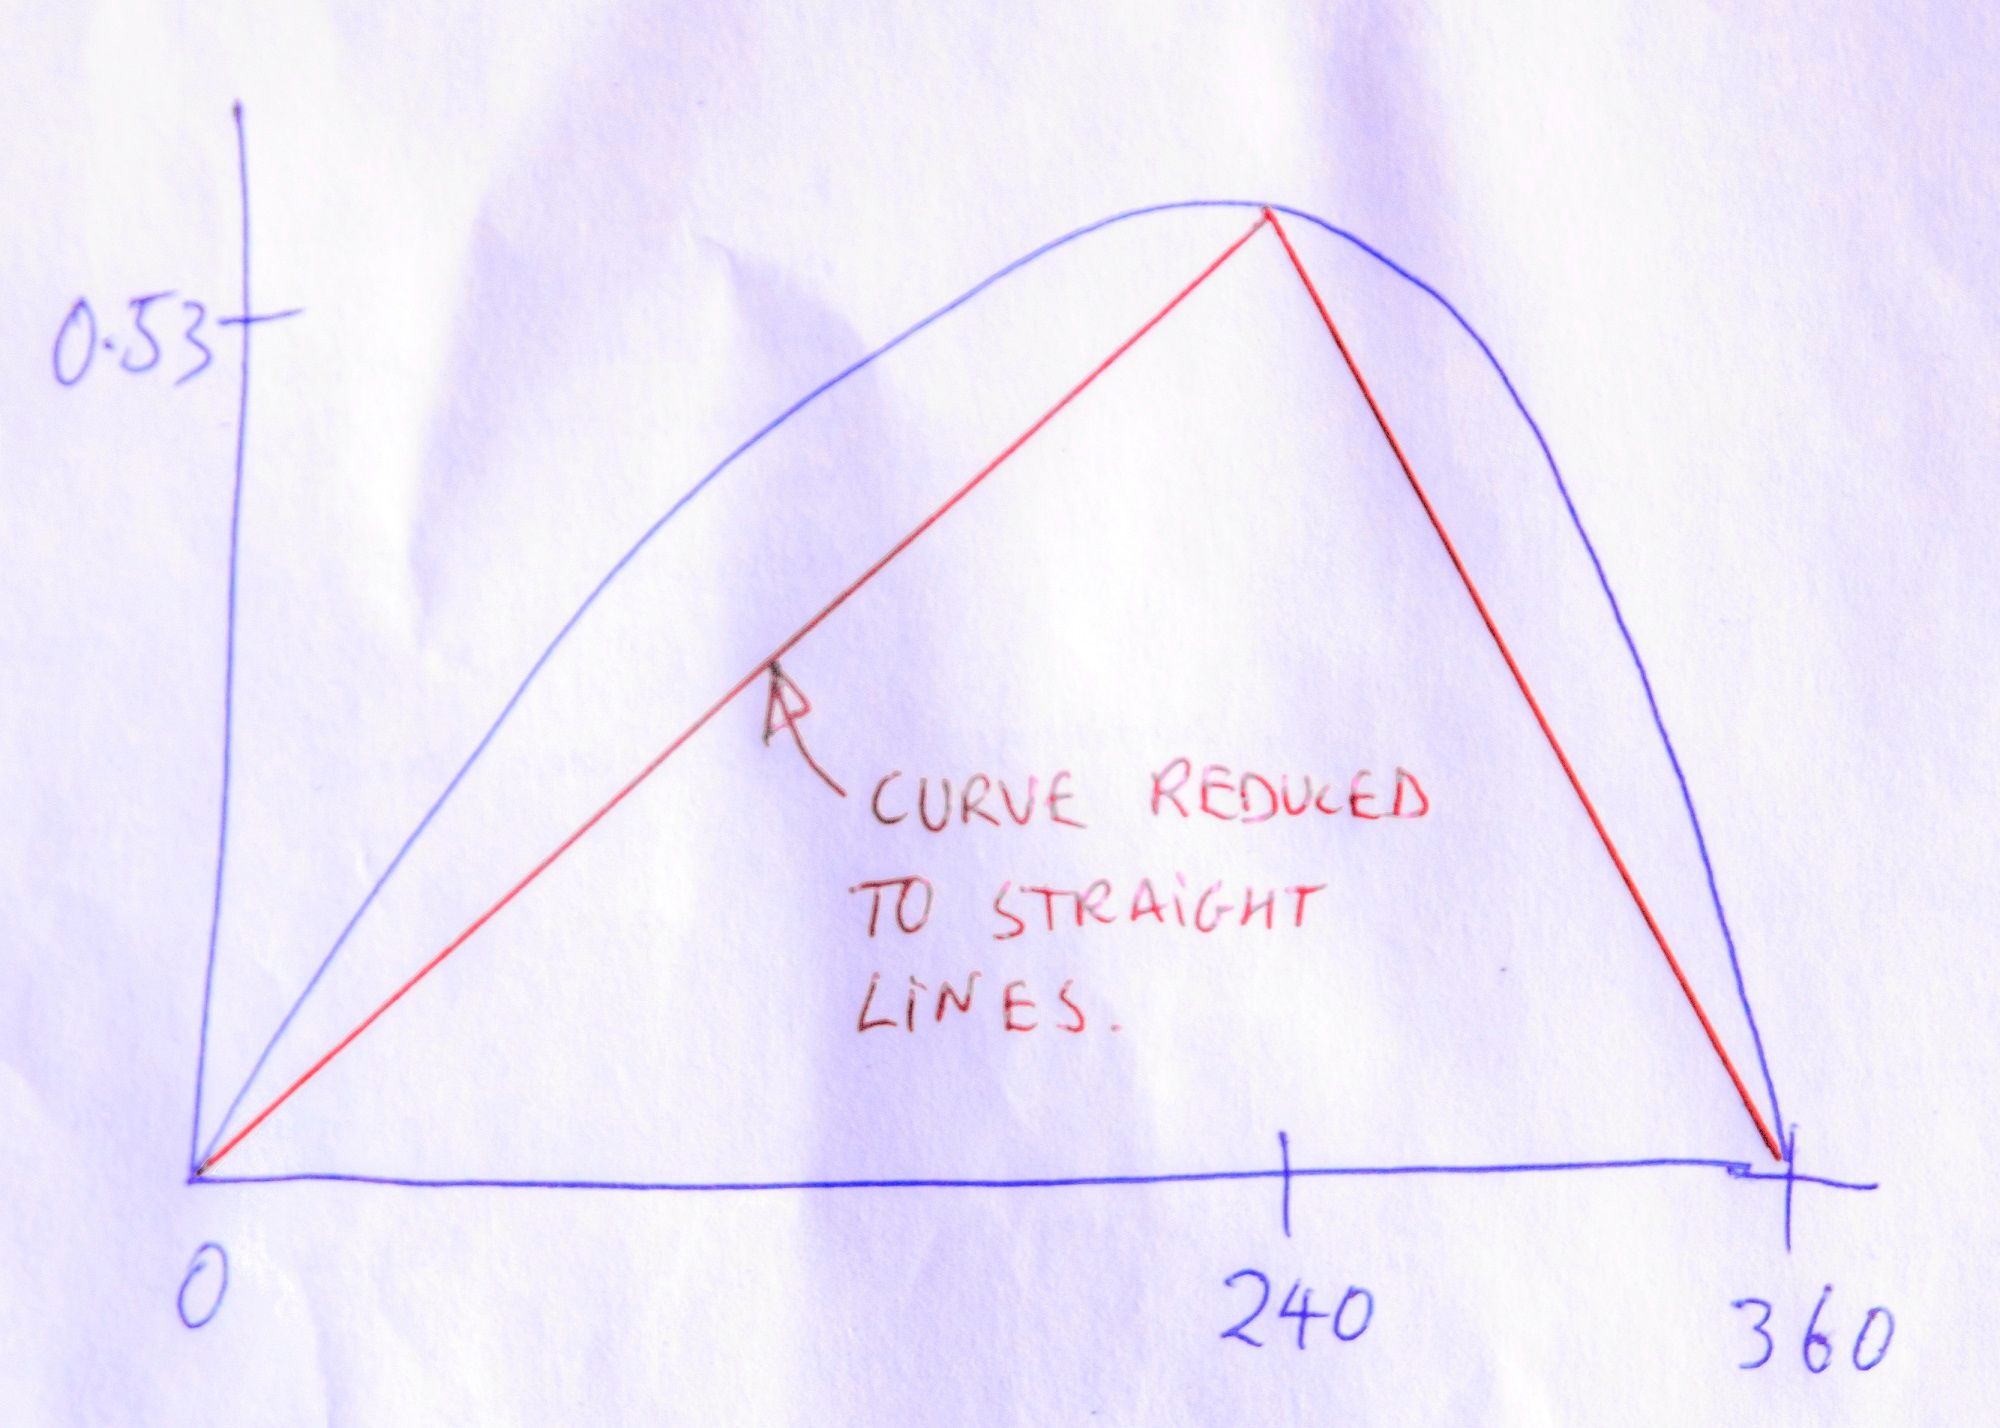 0.53
CURVE REDUCED
TO STRAIGHT
LINES.
0
240
360